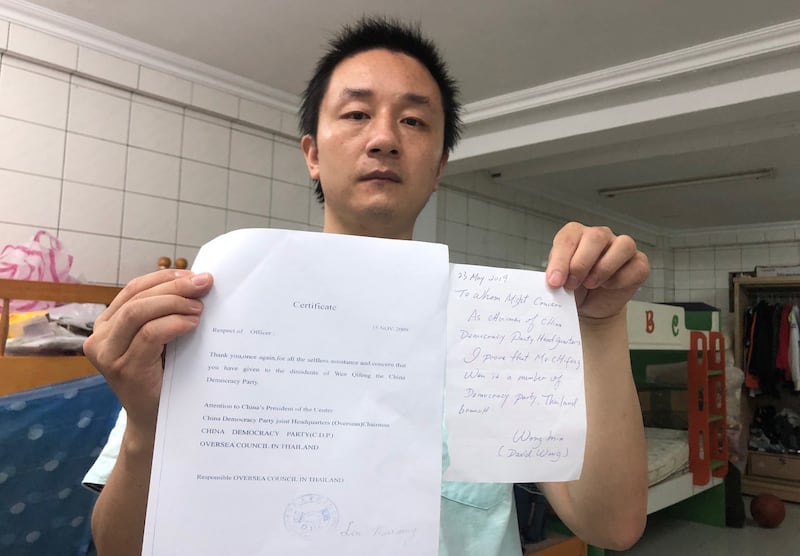 Certificate
Respect of Officer : 15 NOV. 2009
Thank you,once again,for all the selfless assistance and concern that
you have given to the dissidents of Wen Qifeng the China
Democracy Party.
Attention to China's President of the Center
China Democracy Party joint Headquarters (Oversea)Chairmon
CHINA DEMOCRACY PARTY(C.D.P.)
OVERSEA COUNCIL IN THAILAND
Responsible OVERSEA COUNCIL IN THAILAND
23 May 2019
To Whom Might Concern
As chairman of China
Democracy Party Headquarters
I prove that Mr.
Wen is a member of
Democracy party, Thailand
Wang
(David Wang)
B C